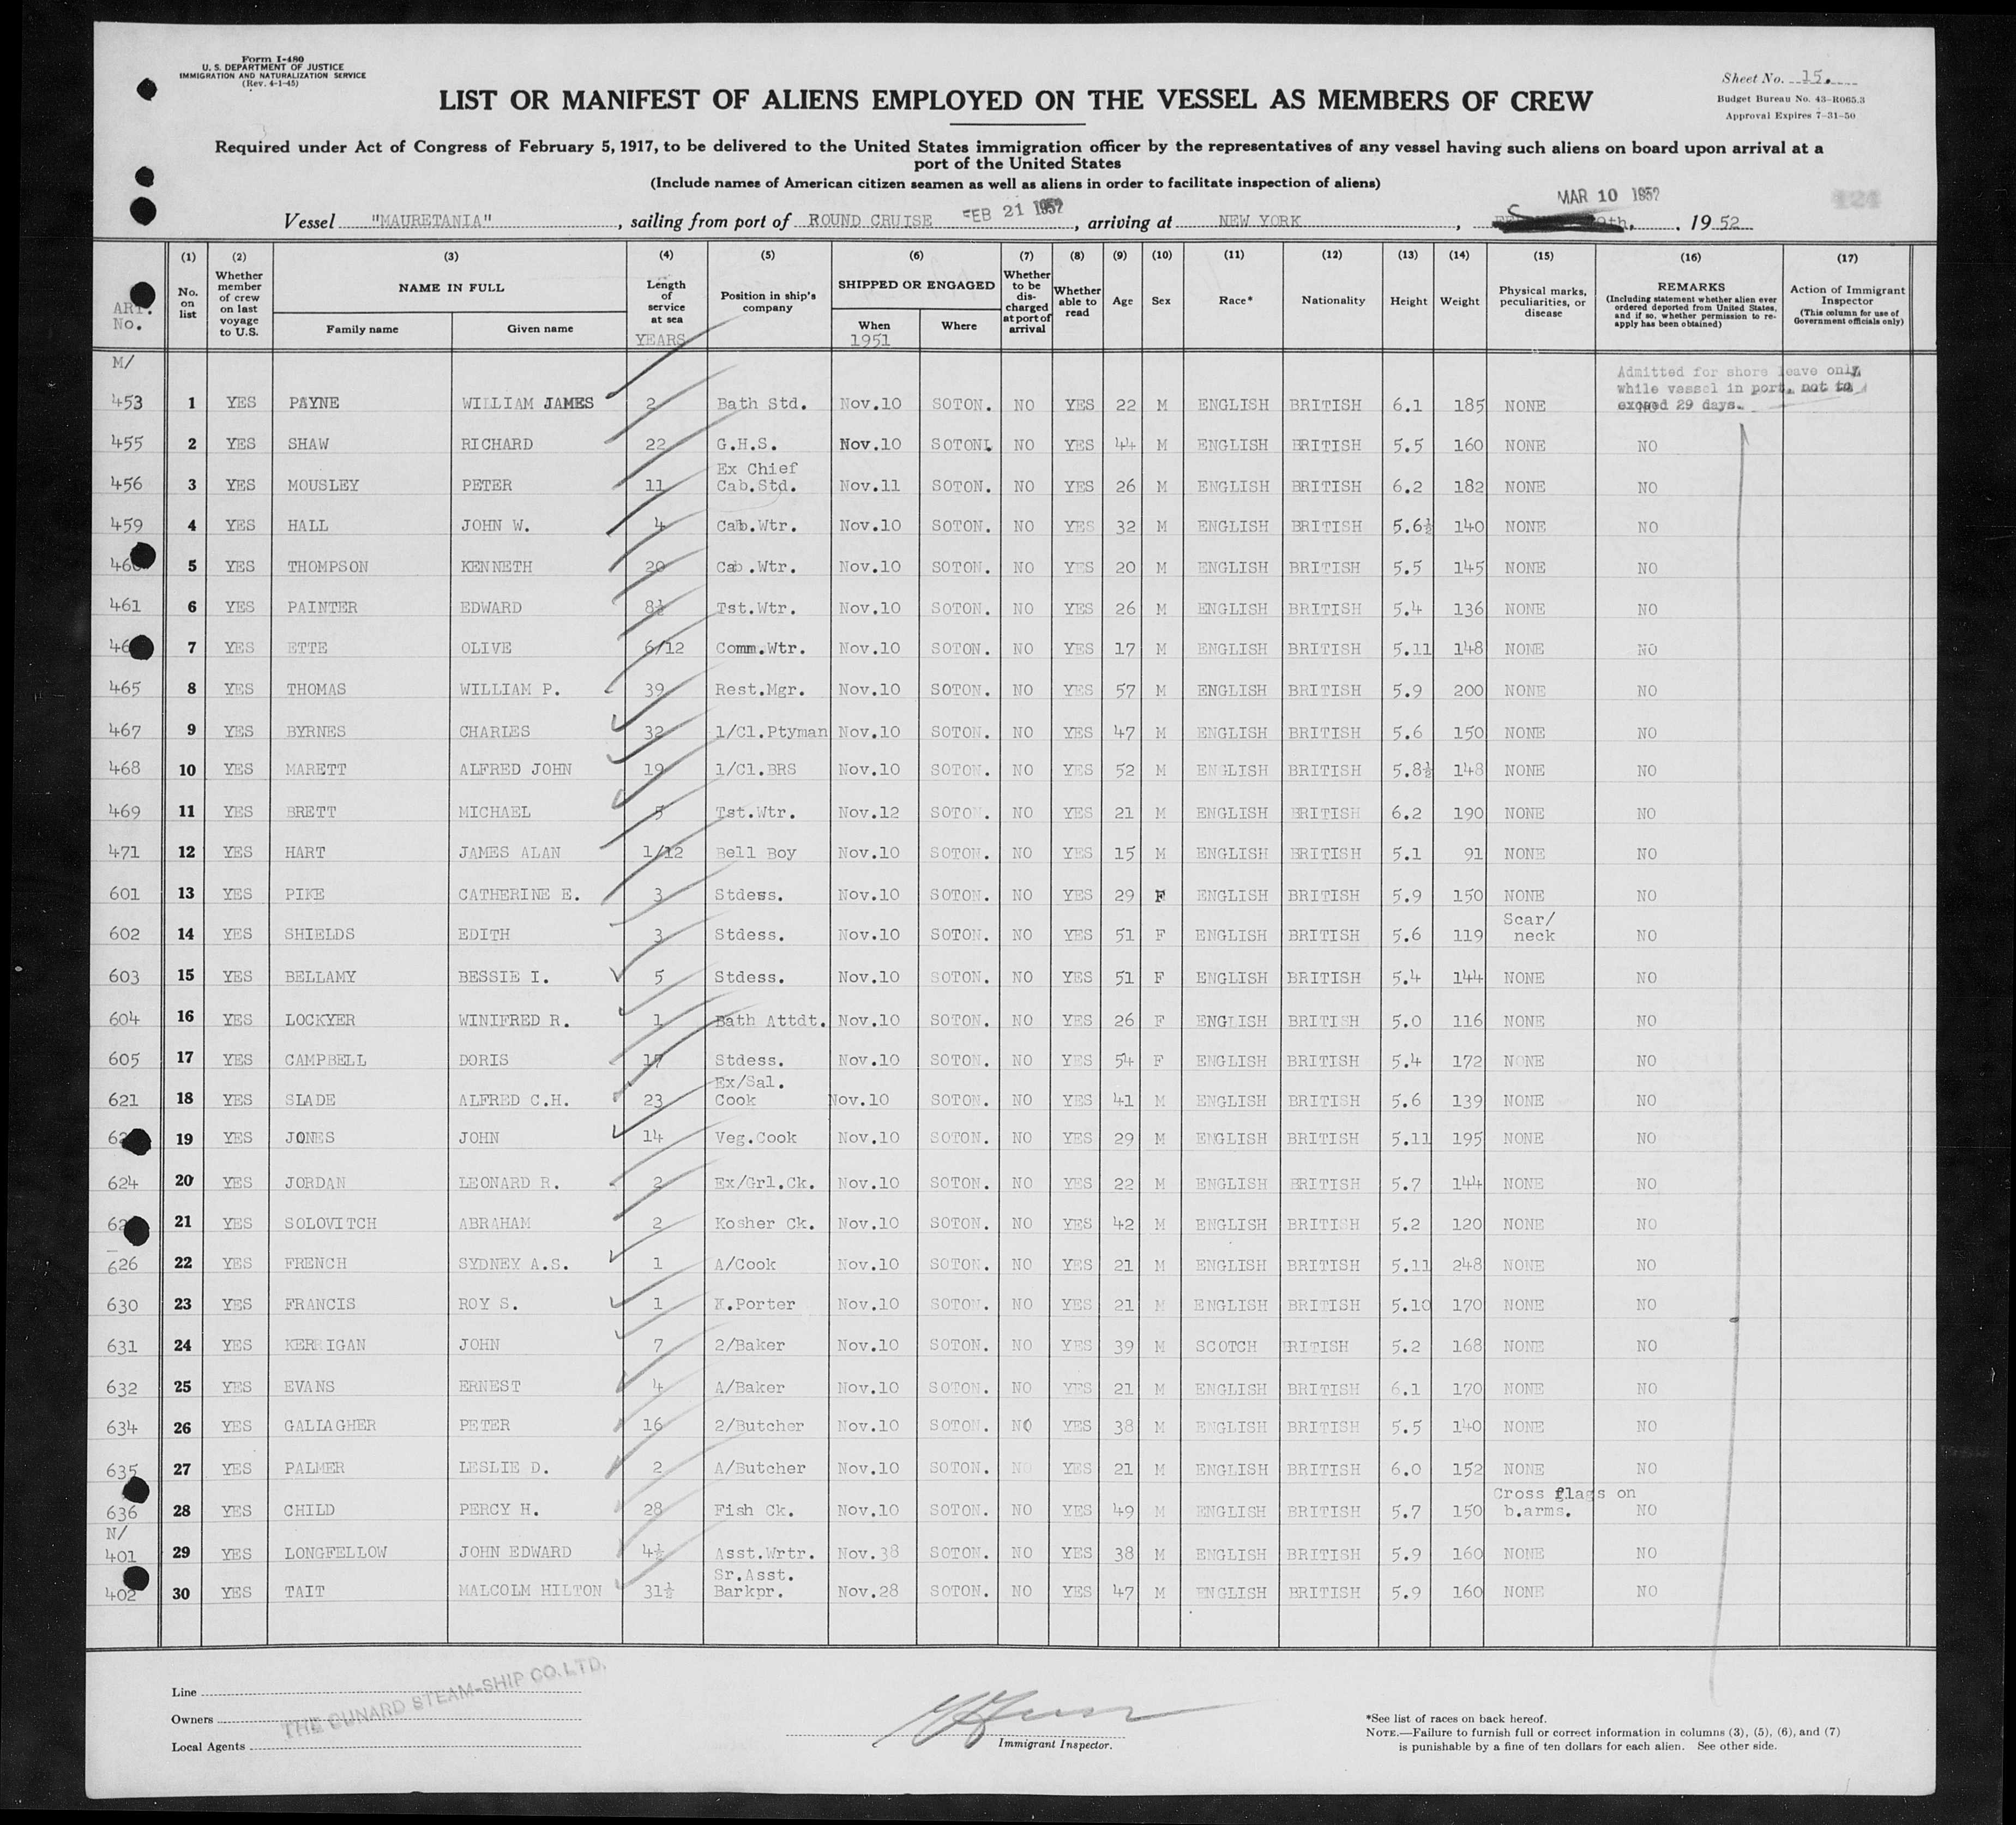 Form I-480
U. S. DEPARTMENT OF JUSTICE
IMMIGRATION AND NATURALIZATION SERVICE
(Rev. 4-1-45)
Sheet No. 15.
Budget Bureau No. 43-R065.3
Approval Expires 7-31-50
LIST OR MANIFEST OF ALIENS EMPLOYED ON THE VESSEL AS MEMBERS OF CREW
Required under Act of Congress of February 5, 1917, to be delivered to the United States immigration officer by the representatives of any vessel having such aliens on board upon arrival at a
port of the United States
(Include names of American citizen seamen as well as aliens in order to facilitate inspection of aliens)
MAR 10 1952
424
Vessel "MAURETANIA", sailing from port of ROUND CRUISE FEB 21 1952, arriving at NEW YORK, 1952
ART. No. (1) No. on list (2) Whether member of crew on last voyage to U.S. (3) NAME IN FULL Family name Given name (4) Length of service at sea YEARS (5) Position in ship's company (6) SHIPPED OR ENGAGED When 1951 Where (7) Whether to be discharged at port of arrival (8) Whether able to read (9) Age (10) Sex (11) Race* (12) Nationality (13) Height (14) Weight (15) Physical marks, peculiarities, or disease (16) REMARKS (Including statement whether alien ever ordered deported from United States, and if so, whether permission to reapply has been obtained) (17) Action of Immigrant Inspector (This column for use of Government officials only)
M/
Admitted for shore leave only
while vessel in port, not to
exceed 29 days.
453 1 YES PAYNE WILLIAM JAMES 2 Bath Std. Nov.10 SOTON. NO YES 22 M ENGLISH BRITISH 6.1 185 NONE
455 2 YES SHAW RICHARD 22 G.H.S. Nov.10 SOTON. NO YES 44 M ENGLISH BRITISH 5.5 160 NONE NO
456 3 YES MOUSLEY PETER 11 Ex Chief Cab.Std. Nov.11 SOTON. NO YES 26 M ENGLISH BRITISH 6.2 182 NONE NO
459 4 YES HALL JOHN W. 4 Cab.Wtr. Nov.10 SOTON. NO YES 32 M ENGLISH BRITISH 5.6½ 140 NONE NO
5 YES THOMPSON KENNETH 20 Cab.Wtr. Nov.10 SOTON. NO YES 20 M ENGLISH BRITISH 5.5 145 NONE NO
461 6 YES PAINTER EDWARD 8½ Tst.Wtr. Nov.10 SOTON. NO YES 26 M ENGLISH BRITISH 5.4 136 NONE NO
7 YES ETTE OLIVE 6/12 Comm.Wtr. Nov.10 SOTON. NO YES 17 M ENGLISH BRITISH 5.11 148 NONE NO
465 8 YES THOMAS WILLIAM P. 39 Rest.Mgr. Nov.10 SOTON. NO YES 57 M ENGLISH BRITISH 5.9 200 NONE NO
467 9 YES BYRNES CHARLES 32 1/Cl.Ptyman Nov.10 SOTON. NO YES 47 M ENGLISH BRITISH 5.6 150 NONE NO
468 10 YES MARETT ALFRED JOHN 19 1/Cl.BRS Nov.10 SOTON. NO YES 52 M ENGLISH BRITISH 5.8½ 148 NONE NO
469 11 YES BRETT MICHAEL 5 Tst.Wtr. Nov.12 SOTON. NO YES 21 M ENGLISH BRITISH 6.2 190 NONE NO
471 12 YES HART JAMES ALAN 1/12 Bell Boy Nov.10 SOTON. NO YES 15 M ENGLISH BRITISH 5.1 91 NONE NO
601 13 YES PIKE CATHERINE E. 3 Stdess. Nov.10 SOTON. NO YES 29 F ENGLISH BRITISH 5.9 150 NONE NO
602 14 YES SHIELDS EDITH 3 Stdess. Nov.10 SOTON. NO YES 51 F ENGLISH BRITISH 5.6 119 Scar/ neck NO
603 15 YES BELLAMY BESSIE I. 5 Stdess. Nov.10 SOTON. NO YES 51 F ENGLISH BRITISH 5.4 144 NONE NO
604 16 YES LOCKYER WINIFRED R. 1 Bath Attdt. Nov.10 SOTON. NO YES 26 F ENGLISH BRITISH 5.0 116 NONE NO
605 17 YES CAMPBELL DORIS 17 Stdess. Nov.10 SOTON. NO YES 54 F ENGLISH BRITISH 5.4 172 NONE NO
621 18 YES SLADE ALFRED C.H. 23 Ex/Sal. Cook Nov.10 SOTON. NO YES 41 M ENGLISH BRITISH 5.6 139 NONE NO
19 YES JONES JOHN 14 Veg.Cook Nov.10 SOTON. NO YES 29 M ENGLISH BRITISH 5.11 195 NONE NO
624 20 YES JORDAN LEONARD R. 2 Ex/Grl.Ck. Nov.10 SOTON. NO YES 22 M ENGLISH BRITISH 5.7 144 NONE NO
21 YES SOLOVITCH ABRAHAM 2 Kosher Ck. Nov.10 SOTON. NO YES 42 M ENGLISH BRITISH 5.2 120 NONE NO
626 22 YES FRENCH SYDNEY A.S. 1 A/Cook Nov.10 SOTON. NO YES 21 M ENGLISH BRITISH 5.11 248 NONE NO
630 23 YES FRANCIS ROY S. 1 K.Porter Nov.10 SOTON. NO YES 21 M ENGLISH BRITISH 5.10 170 NONE NO
631 24 YES KERRIGAN JOHN 7 2/Baker Nov.10 SOTON. NO YES 39 M SCOTCH BRITISH 5.2 168 NONE NO
632 25 YES EVANS ERNEST 4 A/Baker Nov.10 SOTON. NO YES 21 M ENGLISH BRITISH 6.1 170 NONE NO
634 26 YES GALLAGHER PETER 16 2/Butcher Nov.10 SOTON. NO YES 38 M ENGLISH BRITISH 5.5 140 NONE NO
635 27 YES PALMER LESLIE D. 2 A/Butcher Nov.10 SOTON. NO YES 21 M ENGLISH BRITISH 6.0 152 NONE NO
636 28 YES CHILD PERCY H. 28 Fish Ck. Nov.10 SOTON. NO YES 49 M ENGLISH BRITISH 5.7 150 Cross flags on b.arms. NO
N/
401 29 YES LONGFELLOW JOHN EDWARD 4½ Asst.Wrtr. Nov.38 SOTON. NO YES 38 M ENGLISH BRITISH 5.9 160 NONE NO
402 30 YES TAIT MALCOLM HILTON 31½ Sr.Asst. Barkpr. Nov.28 SOTON. NO YES 47 M ENGLISH BRITISH 5.9 160 NONE NO
Line
Owners
THE CUNARD STEAM-SHIP CO. LTD.
Local Agents
Immigrant Inspector.
*See list of races on back hereof.
NOTE.—Failure to furnish full or correct information in columns (3), (5), (6), and (7)
is punishable by a fine of ten dollars for each alien. See other side.